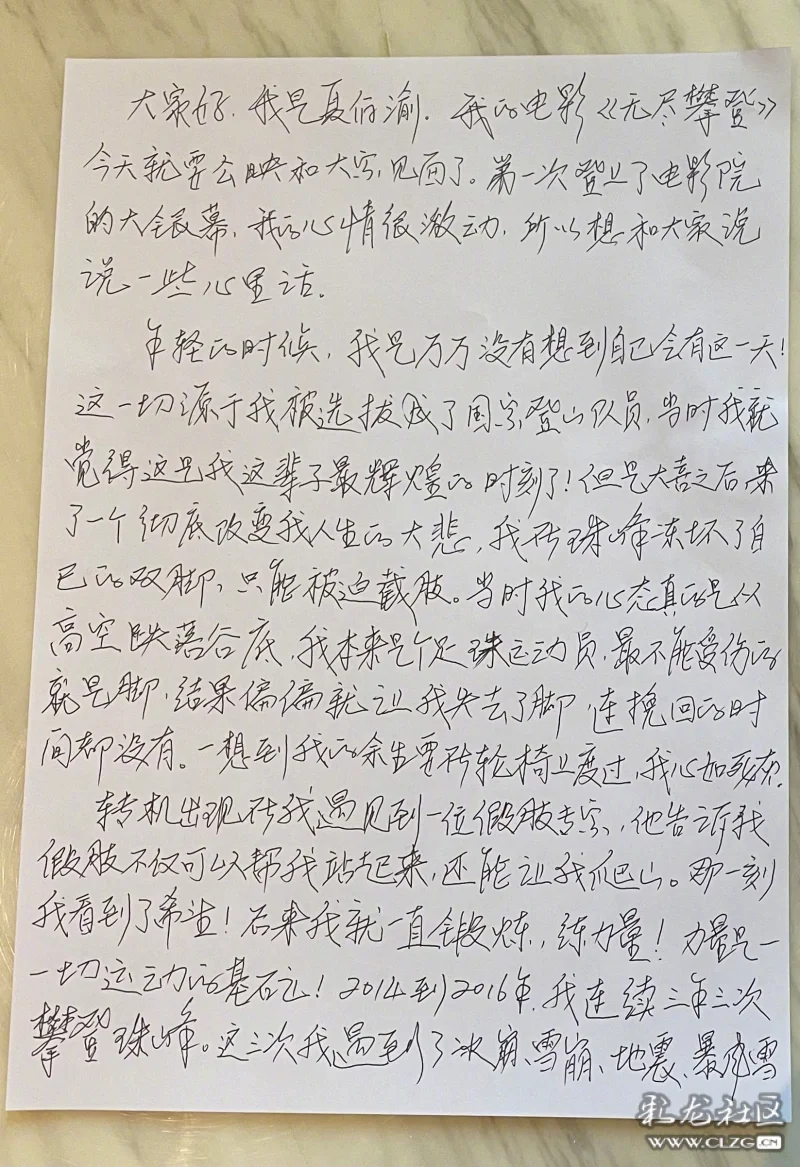 大家好，我是夏伯渝。我的电影《无尽攀登》
今天就要公映和大家见面了。第一次登上了电影院
的大银幕，我的心情很激动，所以想和大家说
说一些心里话。
年轻的时候，我是万万没有想到自己会有这一天！
这一切源于我被选拔成了国家登山队员，当时我就
觉得这是我这辈子最辉煌的时刻了！但是大喜之后来
了一个彻底改变我人生的大悲，我在珠峰冻坏了自
己的双脚，只能被迫截肢。当时我的心态真的是从
高空跌落谷底，我本来是个足球运动员，最不能受伤的
就是脚，结果偏偏就让我失去了脚，连挽回的时
间都没有。一想到我的余生要在轮椅上度过，我心如死灰。
转机出现在我遇见到一位假肢专家，他告诉我
假肢不仅可以帮我站起来，还能让我爬山。那一刻
我看到了希望！后来我就一直锻炼，练力量！力量是一
一切运动的基石！2014到2016年，我连续三年三次
攀登珠峰。这三次我遇到了冰崩、雪崩、地震、暴风雪
彩龙社区
WWW.CLZG.CN